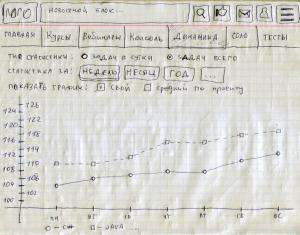 ЛОГО новостной блок...
ГЛАВНАЯ Курсы Вебинары Консоль Динамика Соло Тесты
ТИП СТАТИСТИКИ: задач в сутки задач всего
СТАТИСТИКА ЗА: НЕДЕЛЮ МЕСЯЦ ГОД ...
ПОКАЗАТЬ ГРАФИК: свой средний по проекту
126
124
122
120
118
116
114
112
110
108
106
104
102
100
ПН ВТ СР ЧТ ПТ СБ ВС
- C# - JAVA ...